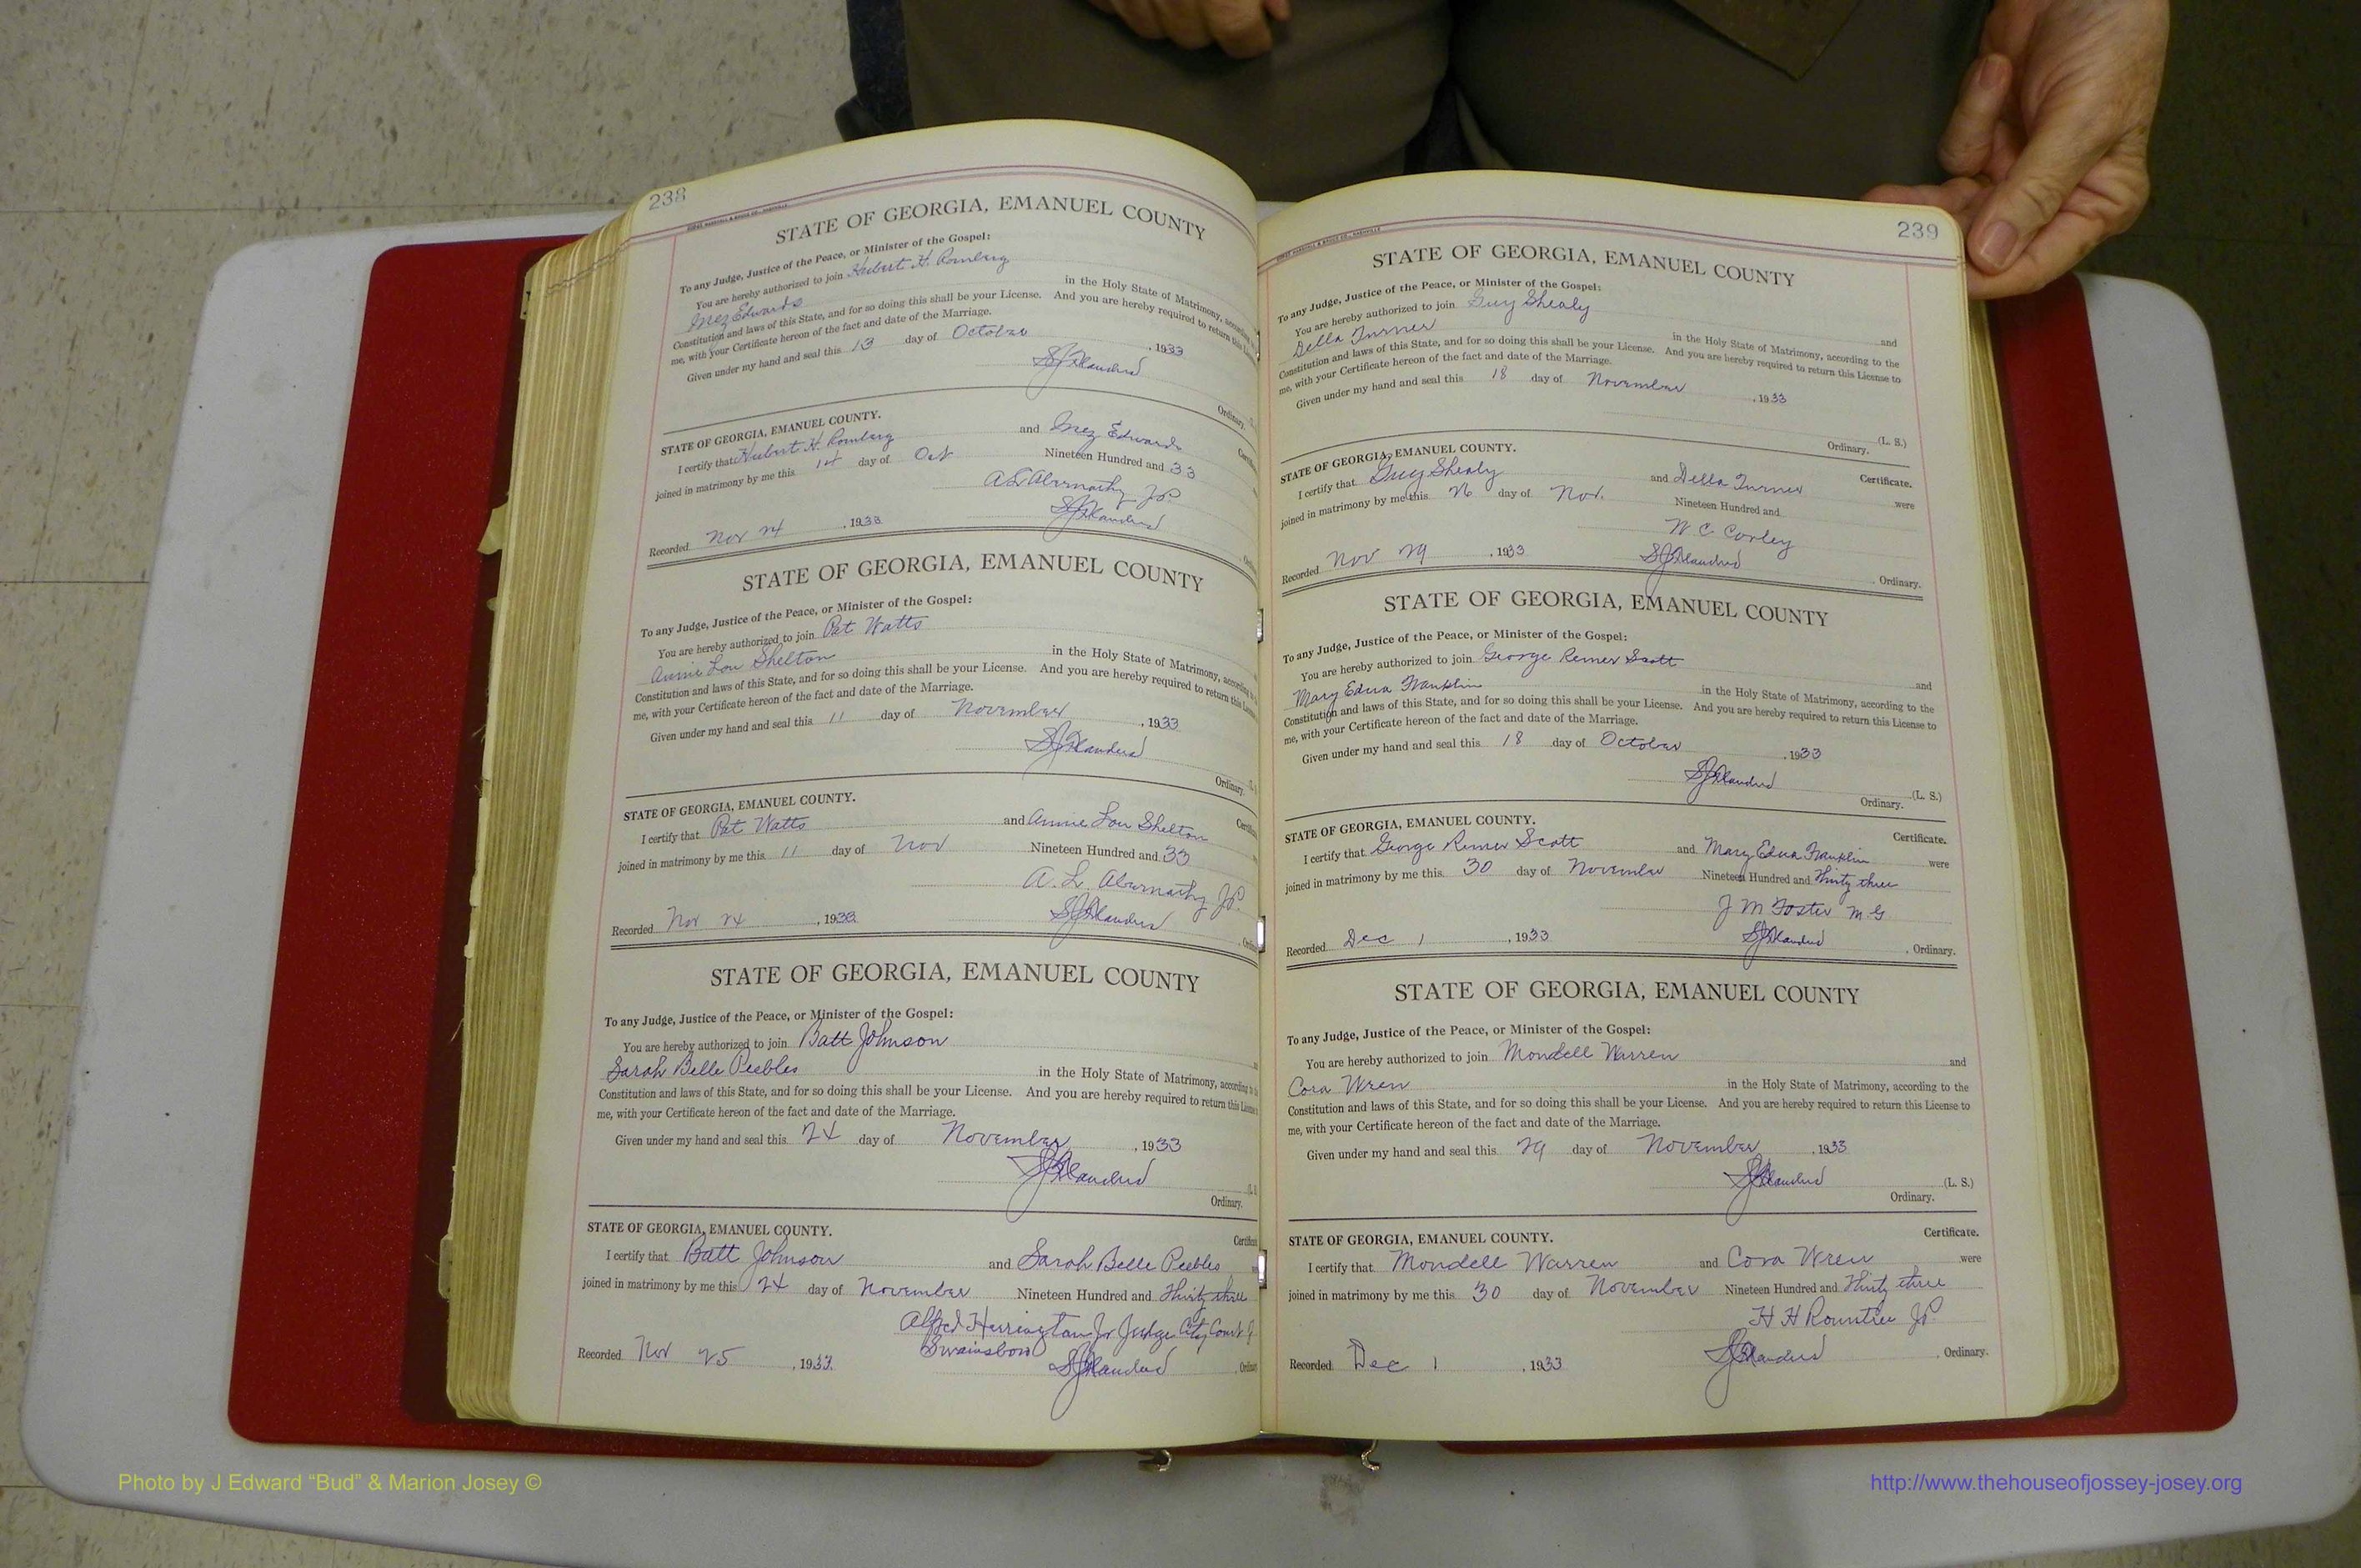 238
STATE OF GEORGIA, EMANUEL COUNTY
To any Judge, Justice of the Peace, or Minister of the Gospel:
You are hereby authorized to join Hubert H. Romberg
Inez Edwards in the Holy State of Matrimony,
Constitution and laws of this State, and for so doing this shall be your License. And you are hereby required to return this
me, with your Certificate hereon of the fact and date of the Marriage.
Given under my hand and seal this 13 day of October, 1933
Ordinary.
STATE OF GEORGIA, EMANUEL COUNTY.
I certify that Hubert H. Romberg and Inez Edwards
joined in matrimony by me this 14 day of Oct Nineteen Hundred and 33
A L Abernathy J.P.
Recorded Nov 24, 1933
STATE OF GEORGIA, EMANUEL COUNTY
To any Judge, Justice of the Peace, or Minister of the Gospel:
You are hereby authorized to join Pat Watts
Annie Lou Shelton in the Holy State of Matrimony, according
Constitution and laws of this State, and for so doing this shall be your License. And you are hereby required to return this
me, with your Certificate hereon of the fact and date of the Marriage.
Given under my hand and seal this 11 day of November, 1933
Ordinary.
STATE OF GEORGIA, EMANUEL COUNTY.
I certify that Pat Watts and Annie Lou Shelton
joined in matrimony by me this 11 day of Nov Nineteen Hundred and 33
A. L. Abernathy J.P.
Recorded Nov 24, 1933
STATE OF GEORGIA, EMANUEL COUNTY
To any Judge, Justice of the Peace, or Minister of the Gospel:
You are hereby authorized to join Batt Johnson
Sarah Belle Peebles in the Holy State of Matrimony, according to
Constitution and laws of this State, and for so doing this shall be your License. And you are hereby required to return this
me, with your Certificate hereon of the fact and date of the Marriage.
Given under my hand and seal this 24 day of November, 1933
Ordinary.
STATE OF GEORGIA, EMANUEL COUNTY.
I certify that Batt Johnson and Sarah Belle Peebles
joined in matrimony by me this 24 day of November Nineteen Hundred and Thirty three
Alfred Herrington Jr Judge City Court of
Swainsboro
Recorded Nov 25, 1933
239
STATE OF GEORGIA, EMANUEL COUNTY
To any Judge, Justice of the Peace, or Minister of the Gospel:
You are hereby authorized to join Guy Shealy and
Della Turner in the Holy State of Matrimony, according to the
Constitution and laws of this State, and for so doing this shall be your License. And you are hereby required to return this License to
me, with your Certificate hereon of the fact and date of the Marriage.
Given under my hand and seal this 18 day of November, 1933
(L. S.)
Ordinary.
STATE OF GEORGIA, EMANUEL COUNTY. Certificate.
I certify that Guy Shealy and Della Turner were
joined in matrimony by me this 26 day of Nov. Nineteen Hundred and
W C Corley
Recorded Nov 29, 1933 Ordinary.
STATE OF GEORGIA, EMANUEL COUNTY
To any Judge, Justice of the Peace, or Minister of the Gospel:
You are hereby authorized to join George Remer Scott and
Mary Edna Franklin in the Holy State of Matrimony, according to the
Constitution and laws of this State, and for so doing this shall be your License. And you are hereby required to return this License to
me, with your Certificate hereon of the fact and date of the Marriage.
Given under my hand and seal this 18 day of October, 1933
(L. S.)
Ordinary.
STATE OF GEORGIA, EMANUEL COUNTY. Certificate.
I certify that George Remer Scott and Mary Edna Franklin were
joined in matrimony by me this 30 day of November Nineteen Hundred and Thirty three
J M Foster M.G.
Recorded Dec 1, 1933 Ordinary.
STATE OF GEORGIA, EMANUEL COUNTY
To any Judge, Justice of the Peace, or Minister of the Gospel:
You are hereby authorized to join Mondell Warren and
Cora Wren in the Holy State of Matrimony, according to the
Constitution and laws of this State, and for so doing this shall be your License. And you are hereby required to return this License to
me, with your Certificate hereon of the fact and date of the Marriage.
Given under my hand and seal this 29 day of November, 1933
(L. S.)
Ordinary.
STATE OF GEORGIA, EMANUEL COUNTY. Certificate.
I certify that Mondell Warren and Cora Wren were
joined in matrimony by me this 30 day of November Nineteen Hundred and Thirty three
H H Rountree J.P.
Recorded Dec 1, 1933 Ordinary.
Photo by J Edward “Bud” & Marion Josey ©
http://www.thehouseofjossey-josey.org